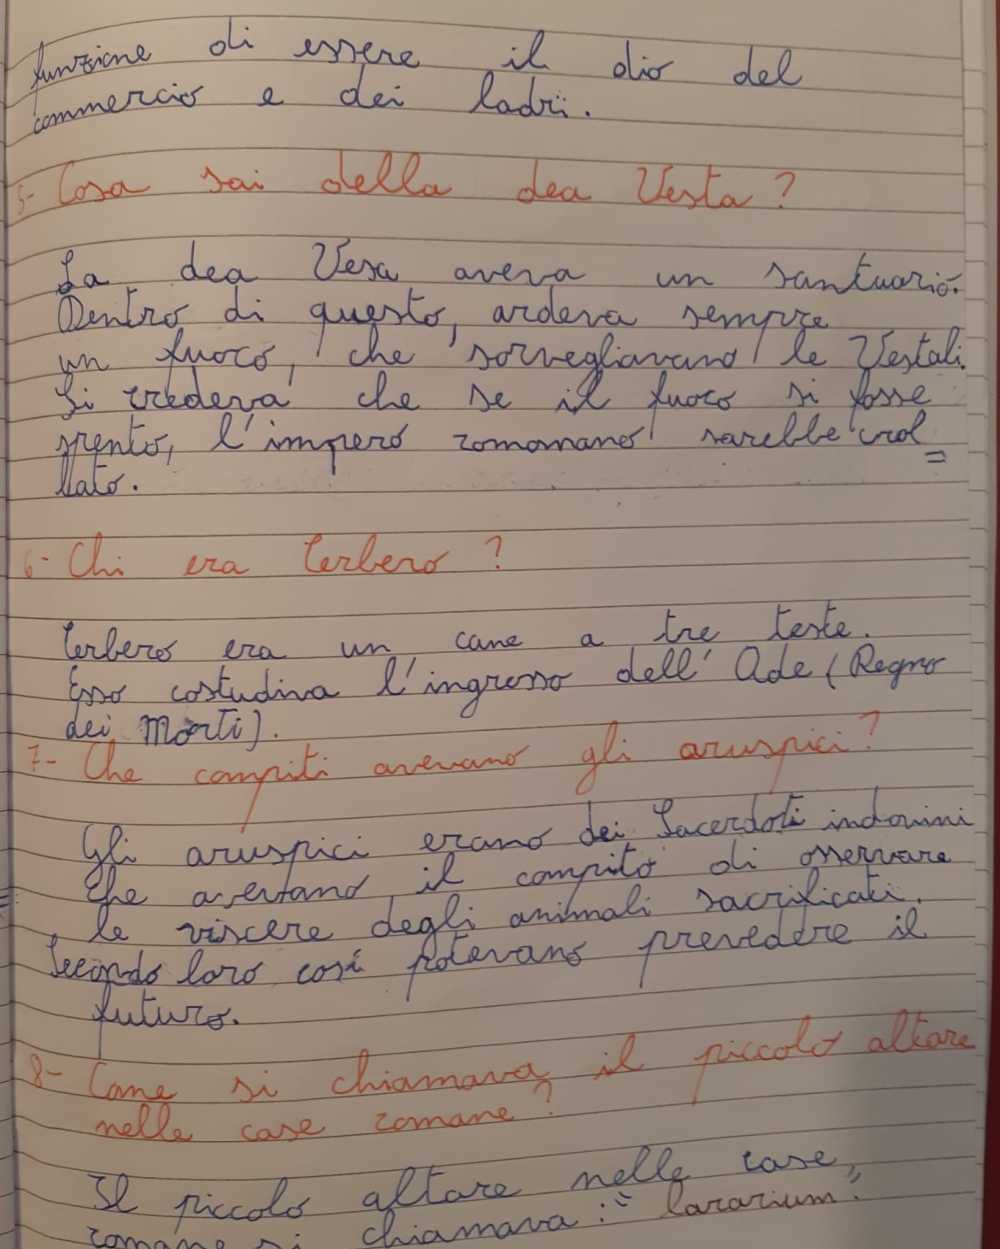 funzione di essere il dio del
commercio e dei ladri.
5- Cosa sai della dea Vesta?
La dea Vesa aveva un santuario.
Dentro di questo, ardeva sempre
un fuoco, che sorvegliavano le Vestali.
Si credeva che se il fuoco si fosse
spento, l'impero romomano sarebbe crol=
lato.
6- Chi era Cerbero?
Cerbero era un cane a tre teste.
Esso costudiva l'ingresso dell'Ade (Regno
dei Morti).
7- Che compiti avevano gli aruspici?
Gli aruspici erano dei Sacerdoti indovini
che avevano il compito di osservare
le viscere degli animali sacrificati.
Secondo loro così potevano prevedere il
futuro.
8- Come si chiamava il piccolo altare
nelle case romane?
Il piccolo altare nelle case,
romane si chiamava: "lararium".